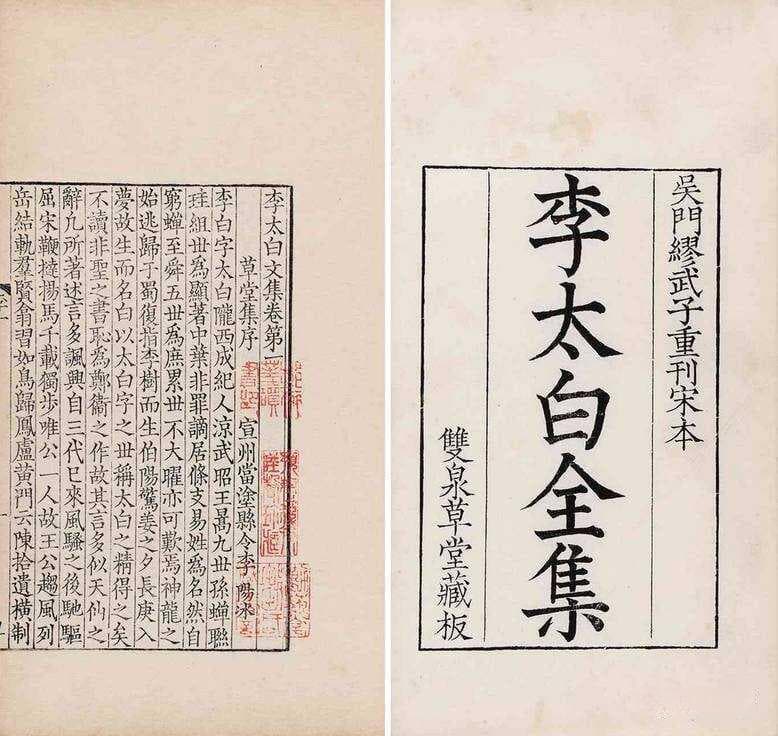 吳門繆武子重刊宋本
李太白全集
雙泉草堂藏板
李太白文集卷第一
草堂集序 宣州當塗縣令李陽冰
李白字太白隴西成紀人涼武昭王暠九世孫蟬聯
珪組世爲顯著中葉非罪謫居條支易姓爲名然自
窮蟬至舜五世爲庶累世不大曜亦可歎焉神龍之
始逃歸于蜀復指李樹而生伯陽驚姜之夕長庚入
夢故生而名白以太白字之世稱太白之精得之矣
不讀非聖之書恥爲鄭衞之作故其言多似天仙之
辭凡所著述言多諷興自三代已來風騷之後馳驅
屈宋鞭撻揚馬千載獨步唯公一人故王公趨風列
岳結軌羣賢翕習如鳥歸鳳盧黃門云陳拾遺橫制